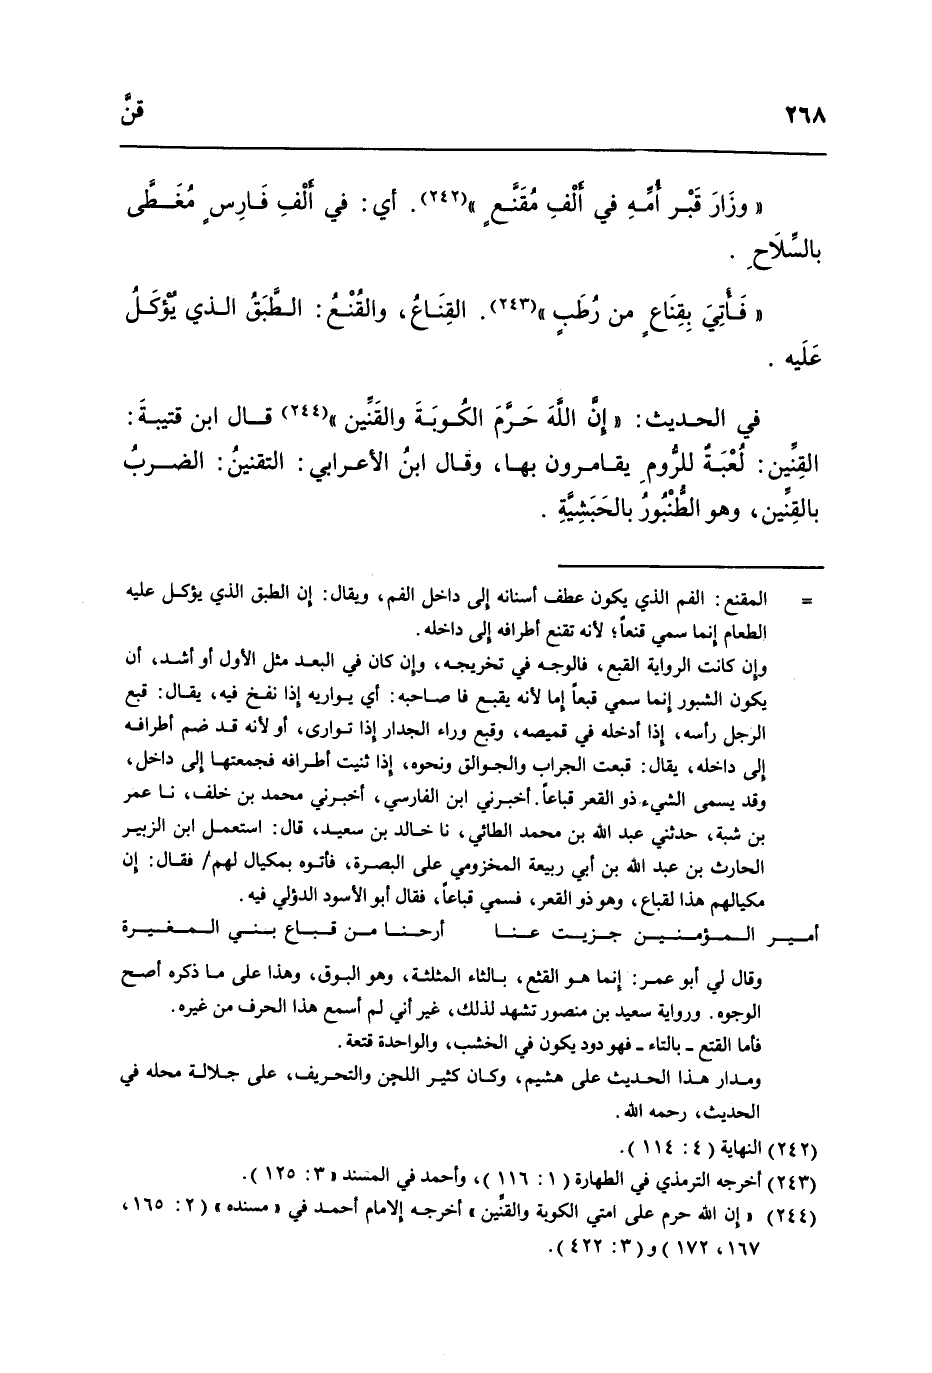 ٢٦٨ قنَّ
« وزَارَ قَبْر أُمِّهِ في أَلْفِ مُقَنَّعٍ »(٢٤٢). أي: في أَلْفِ فَارِسٍ مُغَطَّى
بالسِّلَاحِ .
« فَأُتِيَ بِقِنَاعٍ من رُطَبٍ »(٢٤٣). القِنَاعُ، والقُنْعُ: الطَّبَقُ الذي يُؤْكَلُ
عَلَيه .
في الحديث: « إِنَّ اللَّهَ حَرَّمَ الكُوبَةَ والقَنِّين »(٢٤٤) قال ابن قتيبةَ:
القِنِّين: لُعْبَةٌ للرُّومِ يقامرون بها، وقال ابنُ الأعرابي: التقنينُ: الضربُ
بالقِنِّين، وهو الطُّنْبُورُ بالحَبَشِيَّةِ .
= المقنع: الفم الذي يكون عطف أسنانه إلى داخل الفم، ويقال: إن الطبق الذي يؤكل عليه
الطعام إنما سمي قنعاً؛ لأنه تقنع أطرافه إلى داخله.
وإن كانت الرواية القبع، فالوجه في تخريجه، وإن كان في البعد مثل الأول أو أشد، أن
يكون الشبور إنما سمي قبعاً إما لأنه يقبع فا صاحبه: أي يواريه إذا نفخ فيه، يقال: قبع
الرجل رأسه، إذا أدخله في قميصه، وقبع وراء الجدار إذا توارى، أو لأنه قد ضم أطرافه
إلى داخله، يقال: قبعت الجراب والجوالق ونحوه، إذا ثنيت أطرافه فجمعتها إلى داخل،
وقد يسمى الشيء ذو القعر قباعاً. أخبرني ابن الفارسي، أخبرني محمد بن خلف، نا عمر
بن شبة، حدثني عبد الله بن محمد الطائي، نا خالد بن سعيد، قال: استعمل ابن الزبير
الحارث بن عبد الله بن أبي ربيعة المخزومي على البصرة، فأتوه بمكيال لهم/ فقال: إن
مكيالهم هذا لقباع، وهو ذو القعر، فسمي قباعاً، فقال أبو الأسود الدؤلي فيه.
أمير المؤمنين جزيت عنا أرحنا من قباع بني المغيرة
وقال لي أبو عمر: إنما هو القثع، بالثاء المثلثة، وهو البوق، وهذا على ما ذكره أصح
الوجوه. ورواية سعيد بن منصور تشهد لذلك، غير أني لم أسمع هذا الحرف من غيره.
فأما القتع ـ بالتاء ـ فهو دود يكون في الخشب، والواحدة قتعة.
ومدار هذا الحديث على هشيم، وكان كثير اللحن والتحريف، على جلالة محله في
الحديث، رحمه الله.
(٢٤٢) النهاية (٤: ١١٤).
(٢٤٣) أخرجه الترمذي في الطهارة (١: ١١٦)، وأحمد في المسند «٣: ١٢٥).
(٢٤٤) « إن الله حرم على امتي الكوبة والقنِّين » أخرجه إلامام أحمد في « مسنده » (٢: ١٦٥،
١٦٧، ١٧٢) و(٣: ٤٢٢).